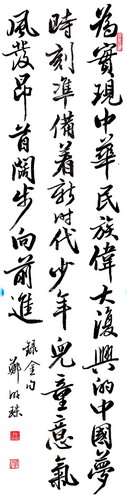 為實現中華民族偉大復興的中國夢
時刻準備着新时代少年兒童意氣
風發昂首闊步向前進
錄金句
鄭明珠